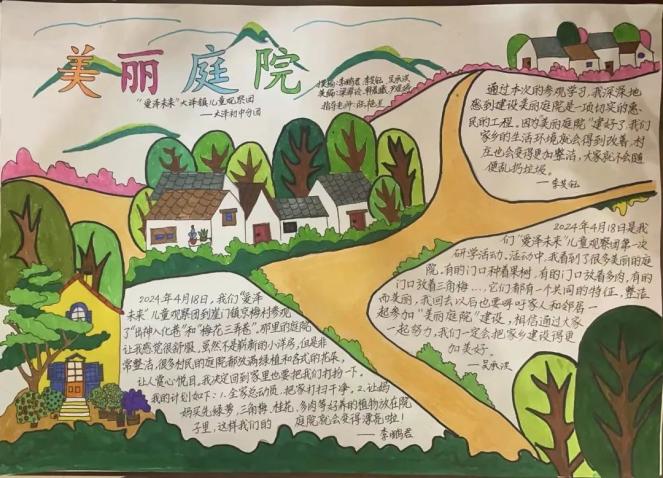 美丽庭院
"爱泽未来"大泽镇儿童观察团
——大泽初中分团
指导老师:
通过本次的参观学习,我深深地
感到建设美丽庭院是一项切实的惠
民的工程,因为美丽庭院建好了,我们
家乡的生活环境就会得到改善,村
庄也会变得更加整洁,大家就不会随
便乱扔垃圾。
2024年4月18日是我
们"爱泽未来"儿童观察团第一次
研学活动,活动中,我看到了很多美丽的庭
院,有的门口种着果树,有的门口放着多肉,有的
门口放着三角梅……,它们都有一个共同的特征,整洁
而美丽,我回去以后也要呼吁家人和邻居一
起参加"美丽庭院"建设,相信通过大家
一起努力,我们一定会把家乡建设得更
加美好。
——吴承汉
2024年4月18日,我们"爱泽
未来"儿童观察团到崖门镇京梅村参观
了"出神入化巷"和"梅花三弄巷",那里的庭院
让我感觉很舒服,虽然不是崭新的小洋房,但是非
常整洁,很多村民的庭院都放满绿植和各式的花朵,
让人赏心悦目,我决定回到家里也要把我们打扮一下,
我的计划如下:1.全家总动员,把家打扫干净,2.让妈
妈买先绿萝,三角梅,桂花,多肉等好养的植物放在院
子里,这样我们的庭院就会变得漂亮啦!
——李鹏君